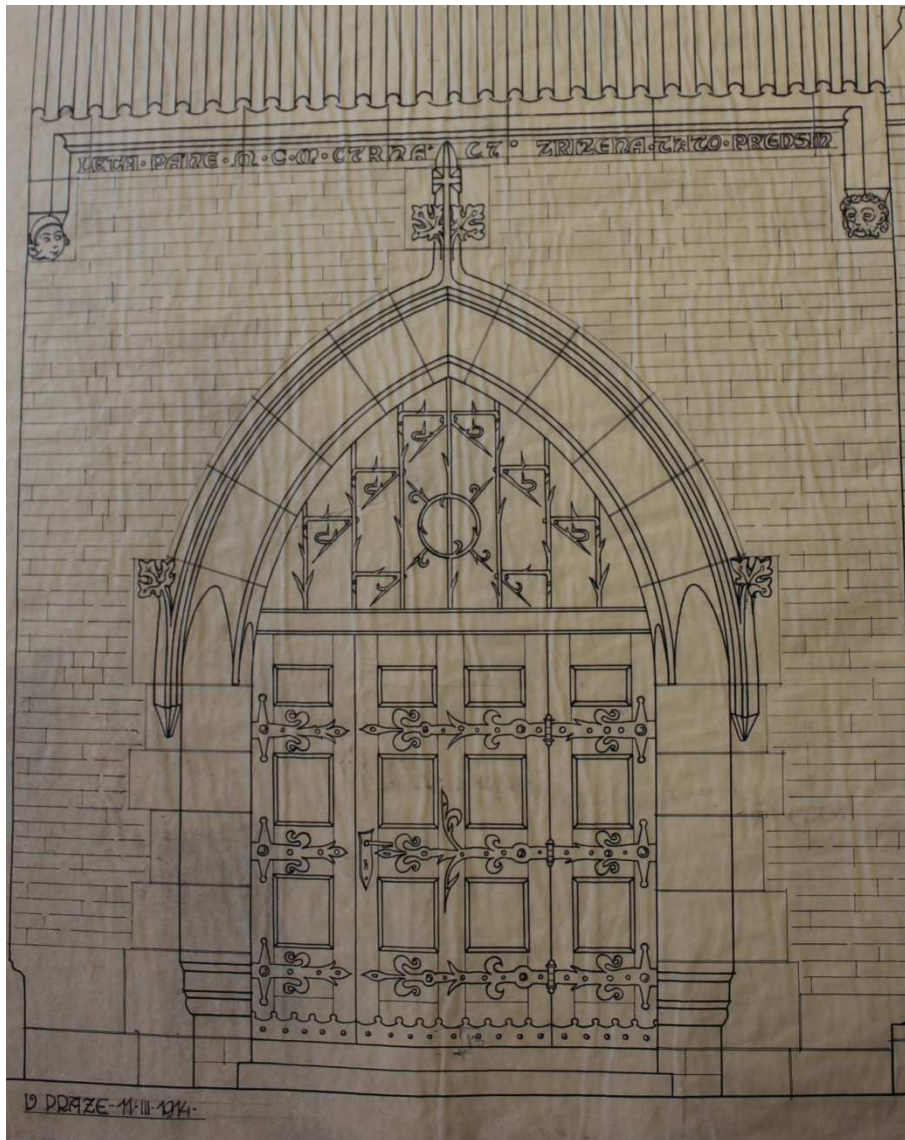 LETA·PANE·M·C·M·CTRNA· CT° ZRIZENA·TATO·PREDSIN
V PRAZE-11·III·1914·